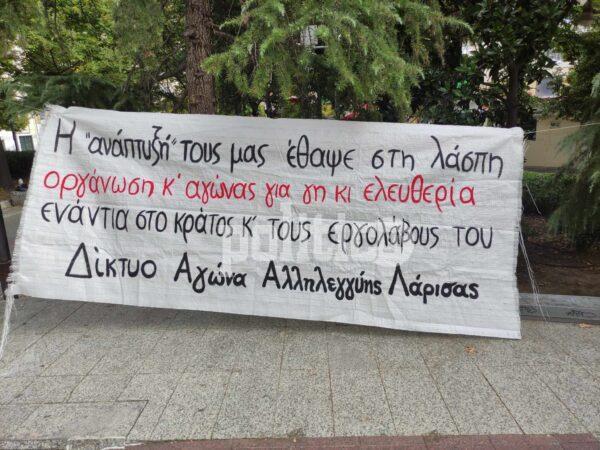 Η "ανάπτυξή" τους μας έθαψε στη λάσπη
οργάνωση κ' αγώνας για γη κι ελευθερία
ενάντια στο κράτος κ' τους εργολάβους του
Δίκτυο Αγώνα Αλληλεγγύης Λάρισας